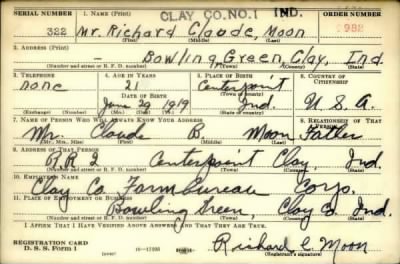 SERIAL NUMBER 1. NAME (Print) CLAY CO. NO. 1 IND. ORDER NUMBER
322 Mr. Richard Claude, Moon 2982
(First) (Middle) (Last)
2. ADDRESS (Print)
- Bowling Green Clay, Ind.
(Number and street or R. F. D. number) (Town) (County) (State)
3. TELEPHONE 4. AGE IN YEARS 5. PLACE OF BIRTH 6. COUNTRY OF CITIZENSHIP
none 21 Centerpoint
DATE OF BIRTH (Town or county)
June 29 1919 Ind. U.S.A.
(Exchange) (Number) (Mo.) (Day) (Yr.) (State or country)
7. NAME OF PERSON WHO WILL ALWAYS KNOW YOUR ADDRESS 8. RELATIONSHIP OF THAT PERSON
Mr. Claude B. Moon Father
(Mr., Mrs., Miss) (First) (Middle) (Last)
9. ADDRESS OF THAT PERSON
R.R. 2 Centerpoint Clay, Ind.
(Number and street or R. F. D. number) (Town) (County) (State)
10. EMPLOYER'S NAME
Clay Co. Farm bureau Corp.
11. PLACE OF EMPLOYMENT OR BUSINESS
Bowling Green, Clay Co. Ind.
(Number and street or R. F. D. number) (Town) (County) (State)
I AFFIRM THAT I HAVE VERIFIED ABOVE ANSWERS AND THAT THEY ARE TRUE.
REGISTRATION CARD
D. S. S. Form 1 (over) Richard C. Moon